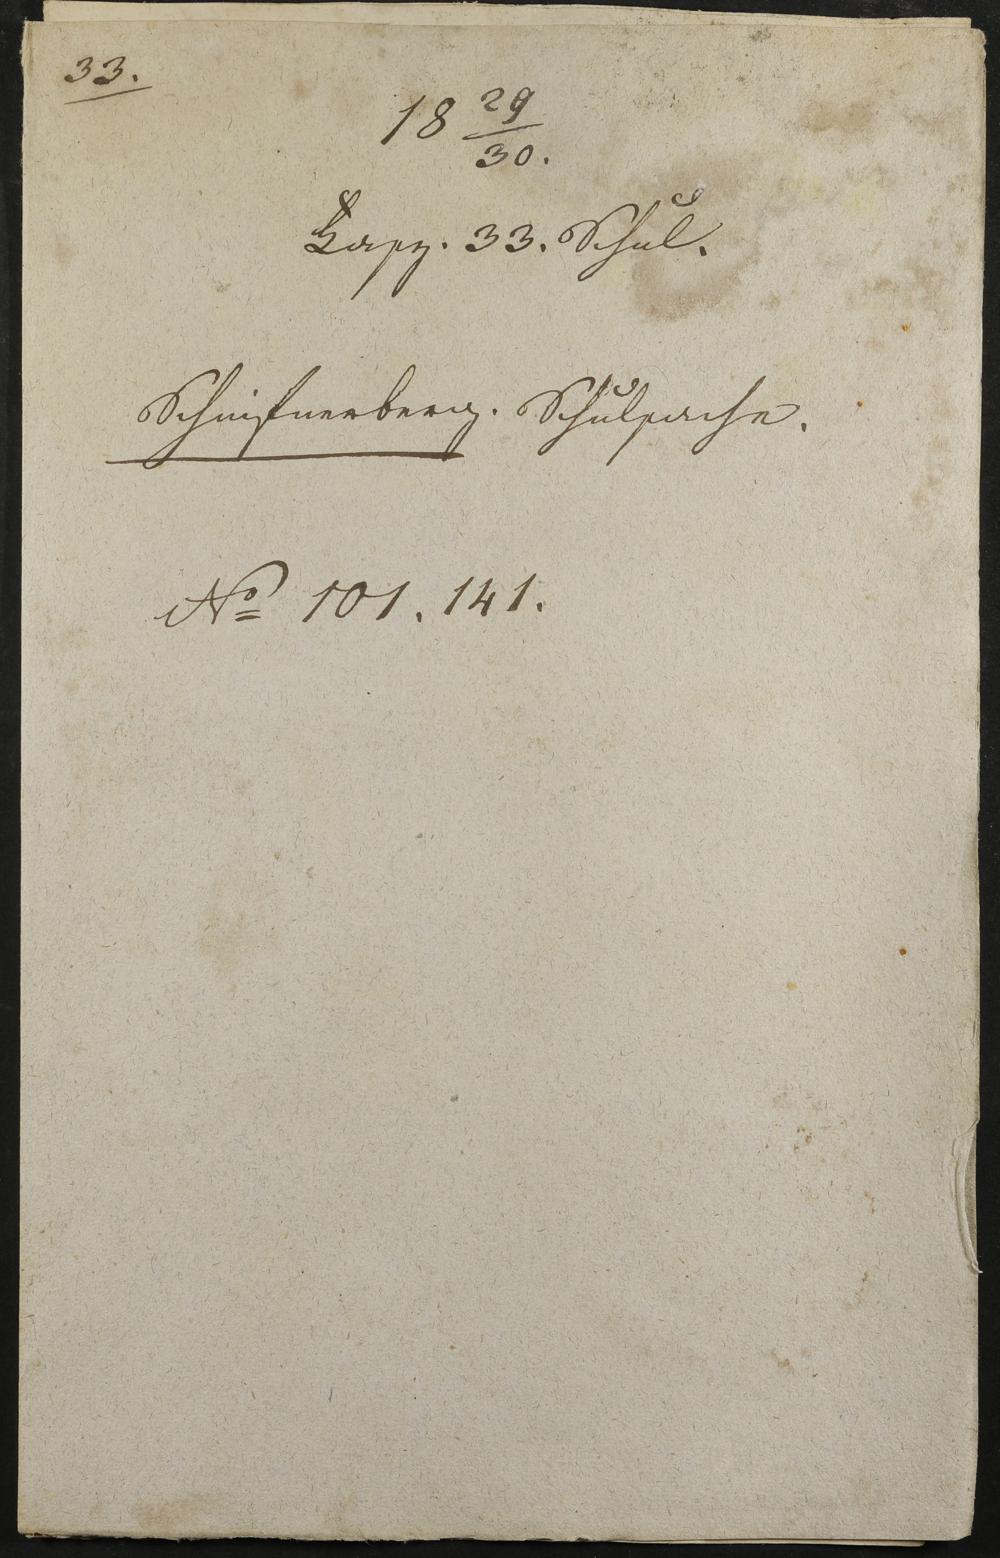 33.
18 29/30.
Fasz. 33. Schul.
Schnifnerberg. Schulsache.
No 101. 141.